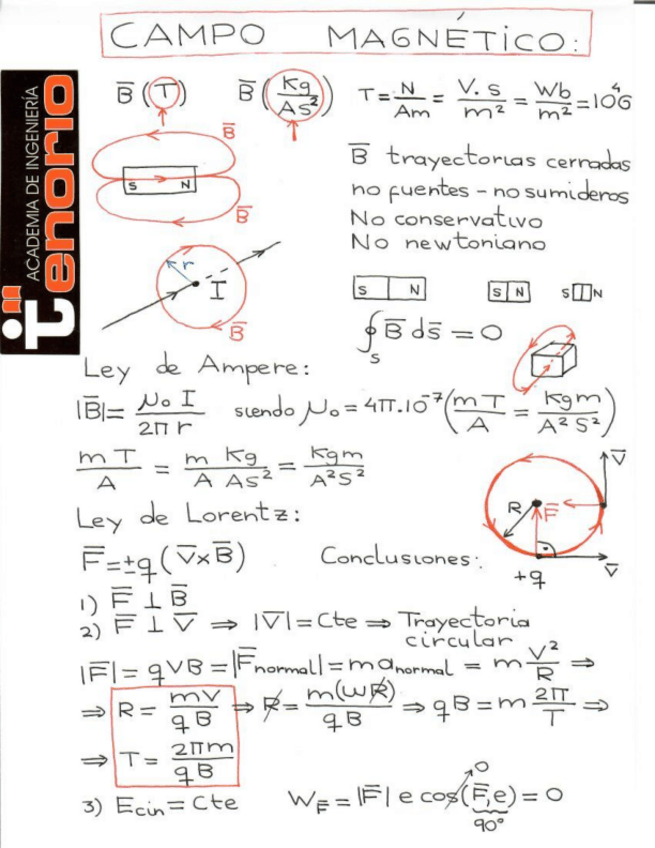 CAMPO MAGNÉTICO:
ACADEMIA DE INGENIERÍA
Tenorio
B̅ (T) B̅ (Kg/AS²) T = N/Am = V.s/m² = Wb/m² = 10⁴G
B̅
S N
B̅
B̅ trayectorias cerradas
no fuentes - no sumideros
No conservativo
No newtoniano
r I
B̅
S N S N S N
∮s B̅ ds̅ = 0
Ley de Ampere:
|B̅| = μ₀ I/2π r siendo μ₀ = 4π.10⁻⁷ (mT/A = Kgm/A²S²)
mT/A = m Kg/A AS² = Kgm/A²S²
Ley de Lorentz:
R F̅ V̅
+q V̅
F̅ = ±q (V̅ x B̅) Conclusiones:
1) F̅ ⊥ B̅
2) F̅ ⊥ V̅ ⇒ |V̅| = Cte ⇒ Trayectoria
circular
|F̅| = qVB = |F̅normal| = m anormal = m V²/R ⇒
⇒ R = mV/qB ⇒ R = m(ωR)/qB ⇒ qB = m 2π/T ⇒
⇒ T = 2πm/qB
3) Ecin = Cte W F̅ = |F̅| e cos(F̅,e) = 0
0
90°